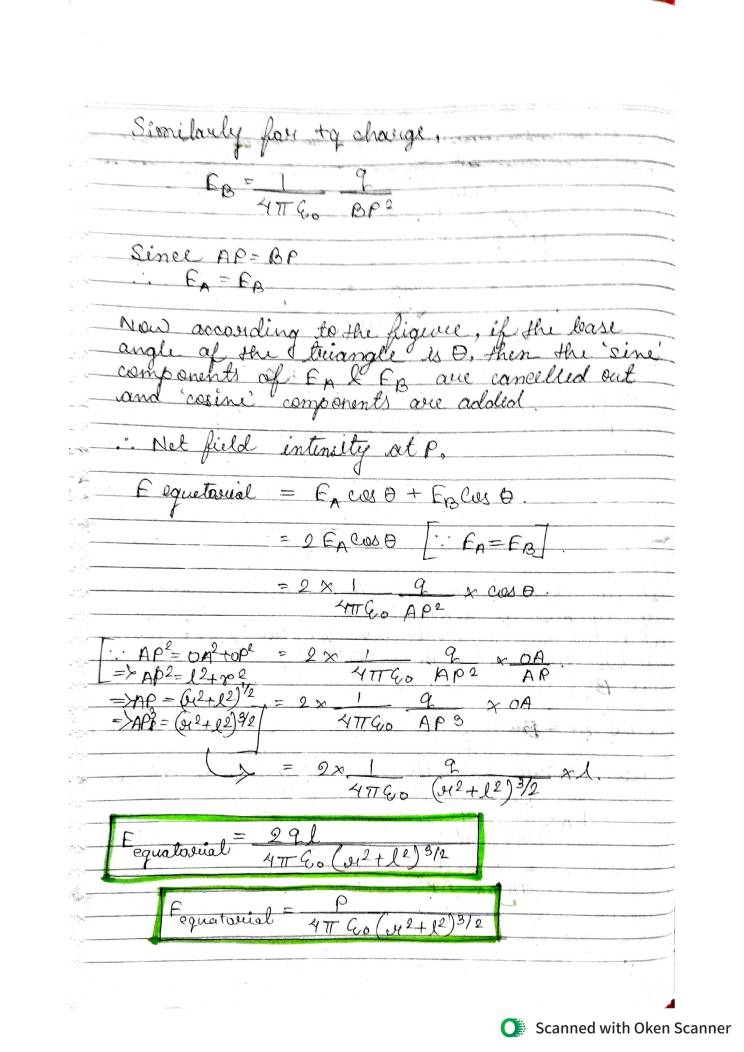 Similarly for +q charge,
E_B = 1/4πε₀ q/BP²
Since AP = BP
∴ E_A = E_B
Now according to the figure, if the base
angle of the triangle is θ, then the 'sine'
components of E_A & E_B are cancelled out
and 'cosine' components are added.
∴ Net field intensity at P,
E equetorial = E_A cos θ + E_B Cos θ.
= 2 E_A Cos θ [∵ E_A = E_B].
= 2 × 1/4πε₀ q/AP² × cos θ.
[∵ AP² = OA² + OP² = 2 × 1/4πε₀ q/AP² × OA/AP
=> AP² = l² + r²
=> AP = (r² + l²)^1/2 = 2 × 1/4πε₀ q/AP³ × OA
=> AP³ = (r² + l²)^3/2
↳ = 2 × 1/4πε₀ q/(r² + l²)^3/2 × l.
E equatorial = 2ql/4πε₀ (r² + l²)^3/2
E equatorial = P/4πε₀ (r² + l²)^3/2
Scanned with Oken Scanner